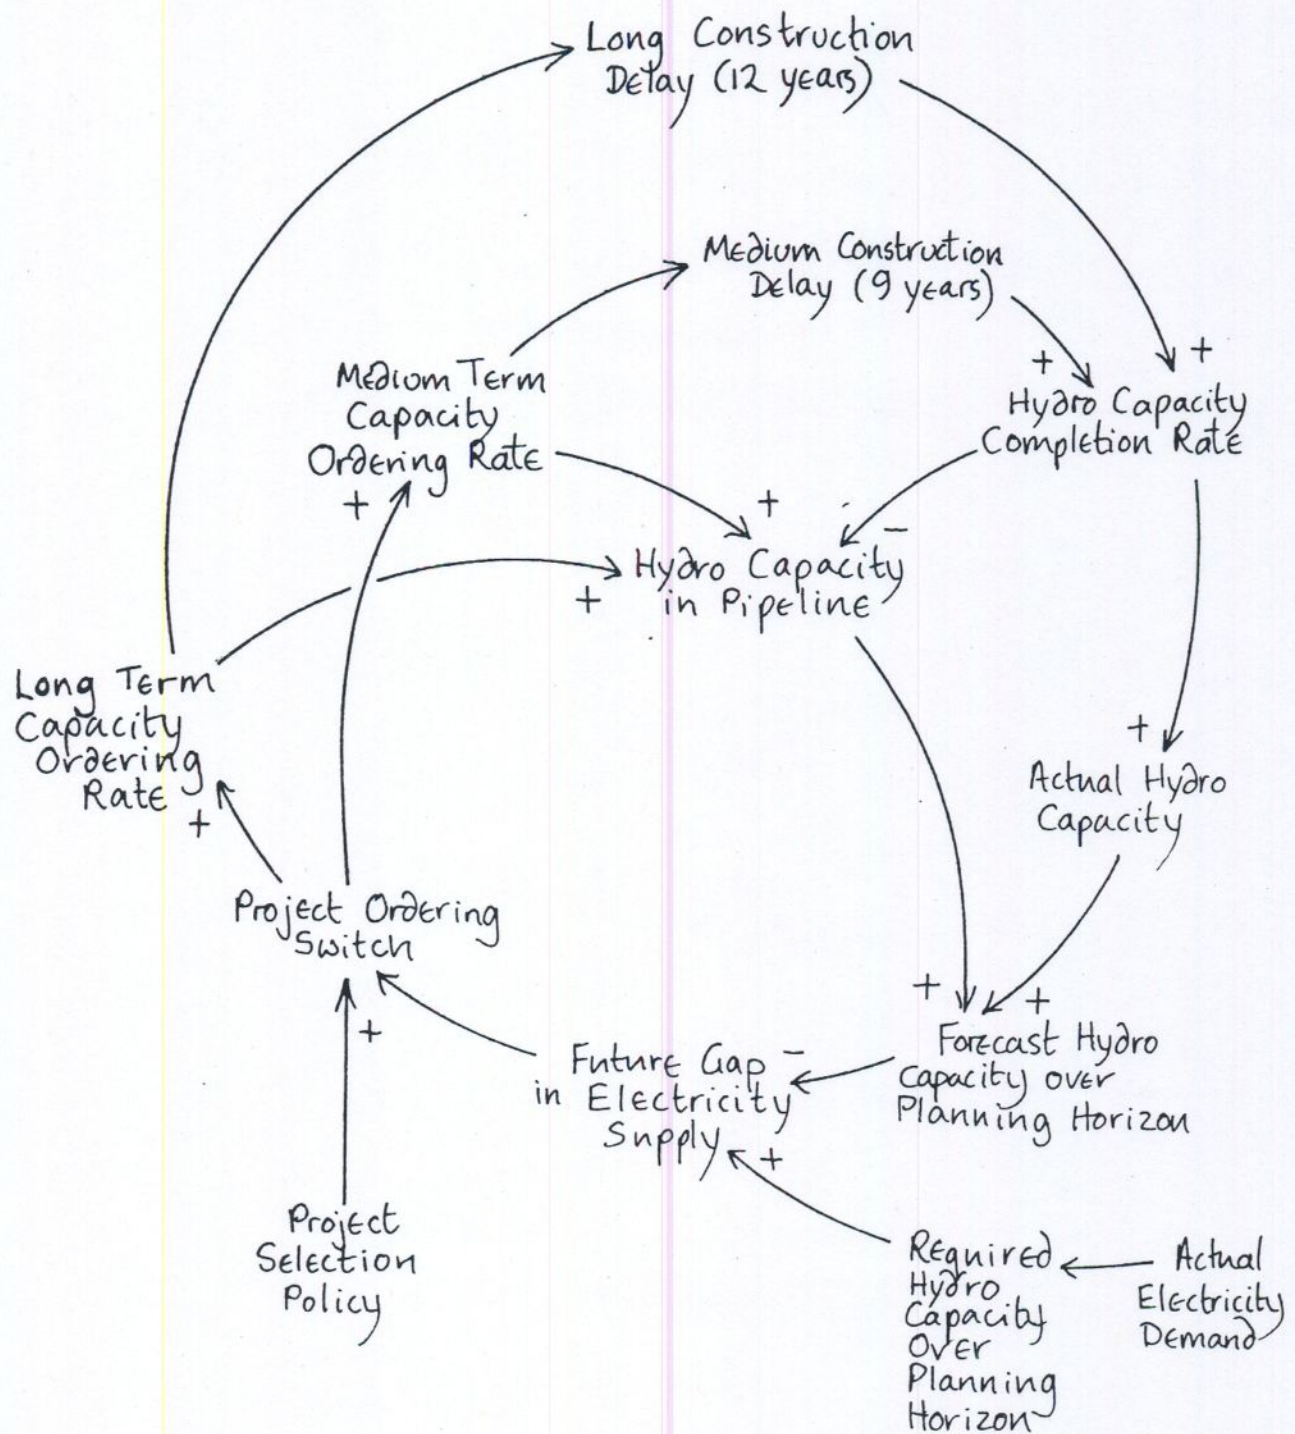 Long Construction
Delay (12 years)
Medium Construction
Delay (9 years)
+
+
Medium Term
Capacity
Ordering Rate
+
Hydro Capacity
Completion Rate
+
-
Hydro Capacity
in Pipeline
+
Long Term
Capacity
Ordering
Rate
+
+
Actual Hydro
Capacity
Project Ordering
Switch
+
+
+
Forecast Hydro
Capacity over
Planning Horizon
-
Future Gap
in Electricity
Supply
+
Project
Selection
Policy
Required
Hydro
Capacity
Over
Planning
Horizon
Actual
Electricity
Demand